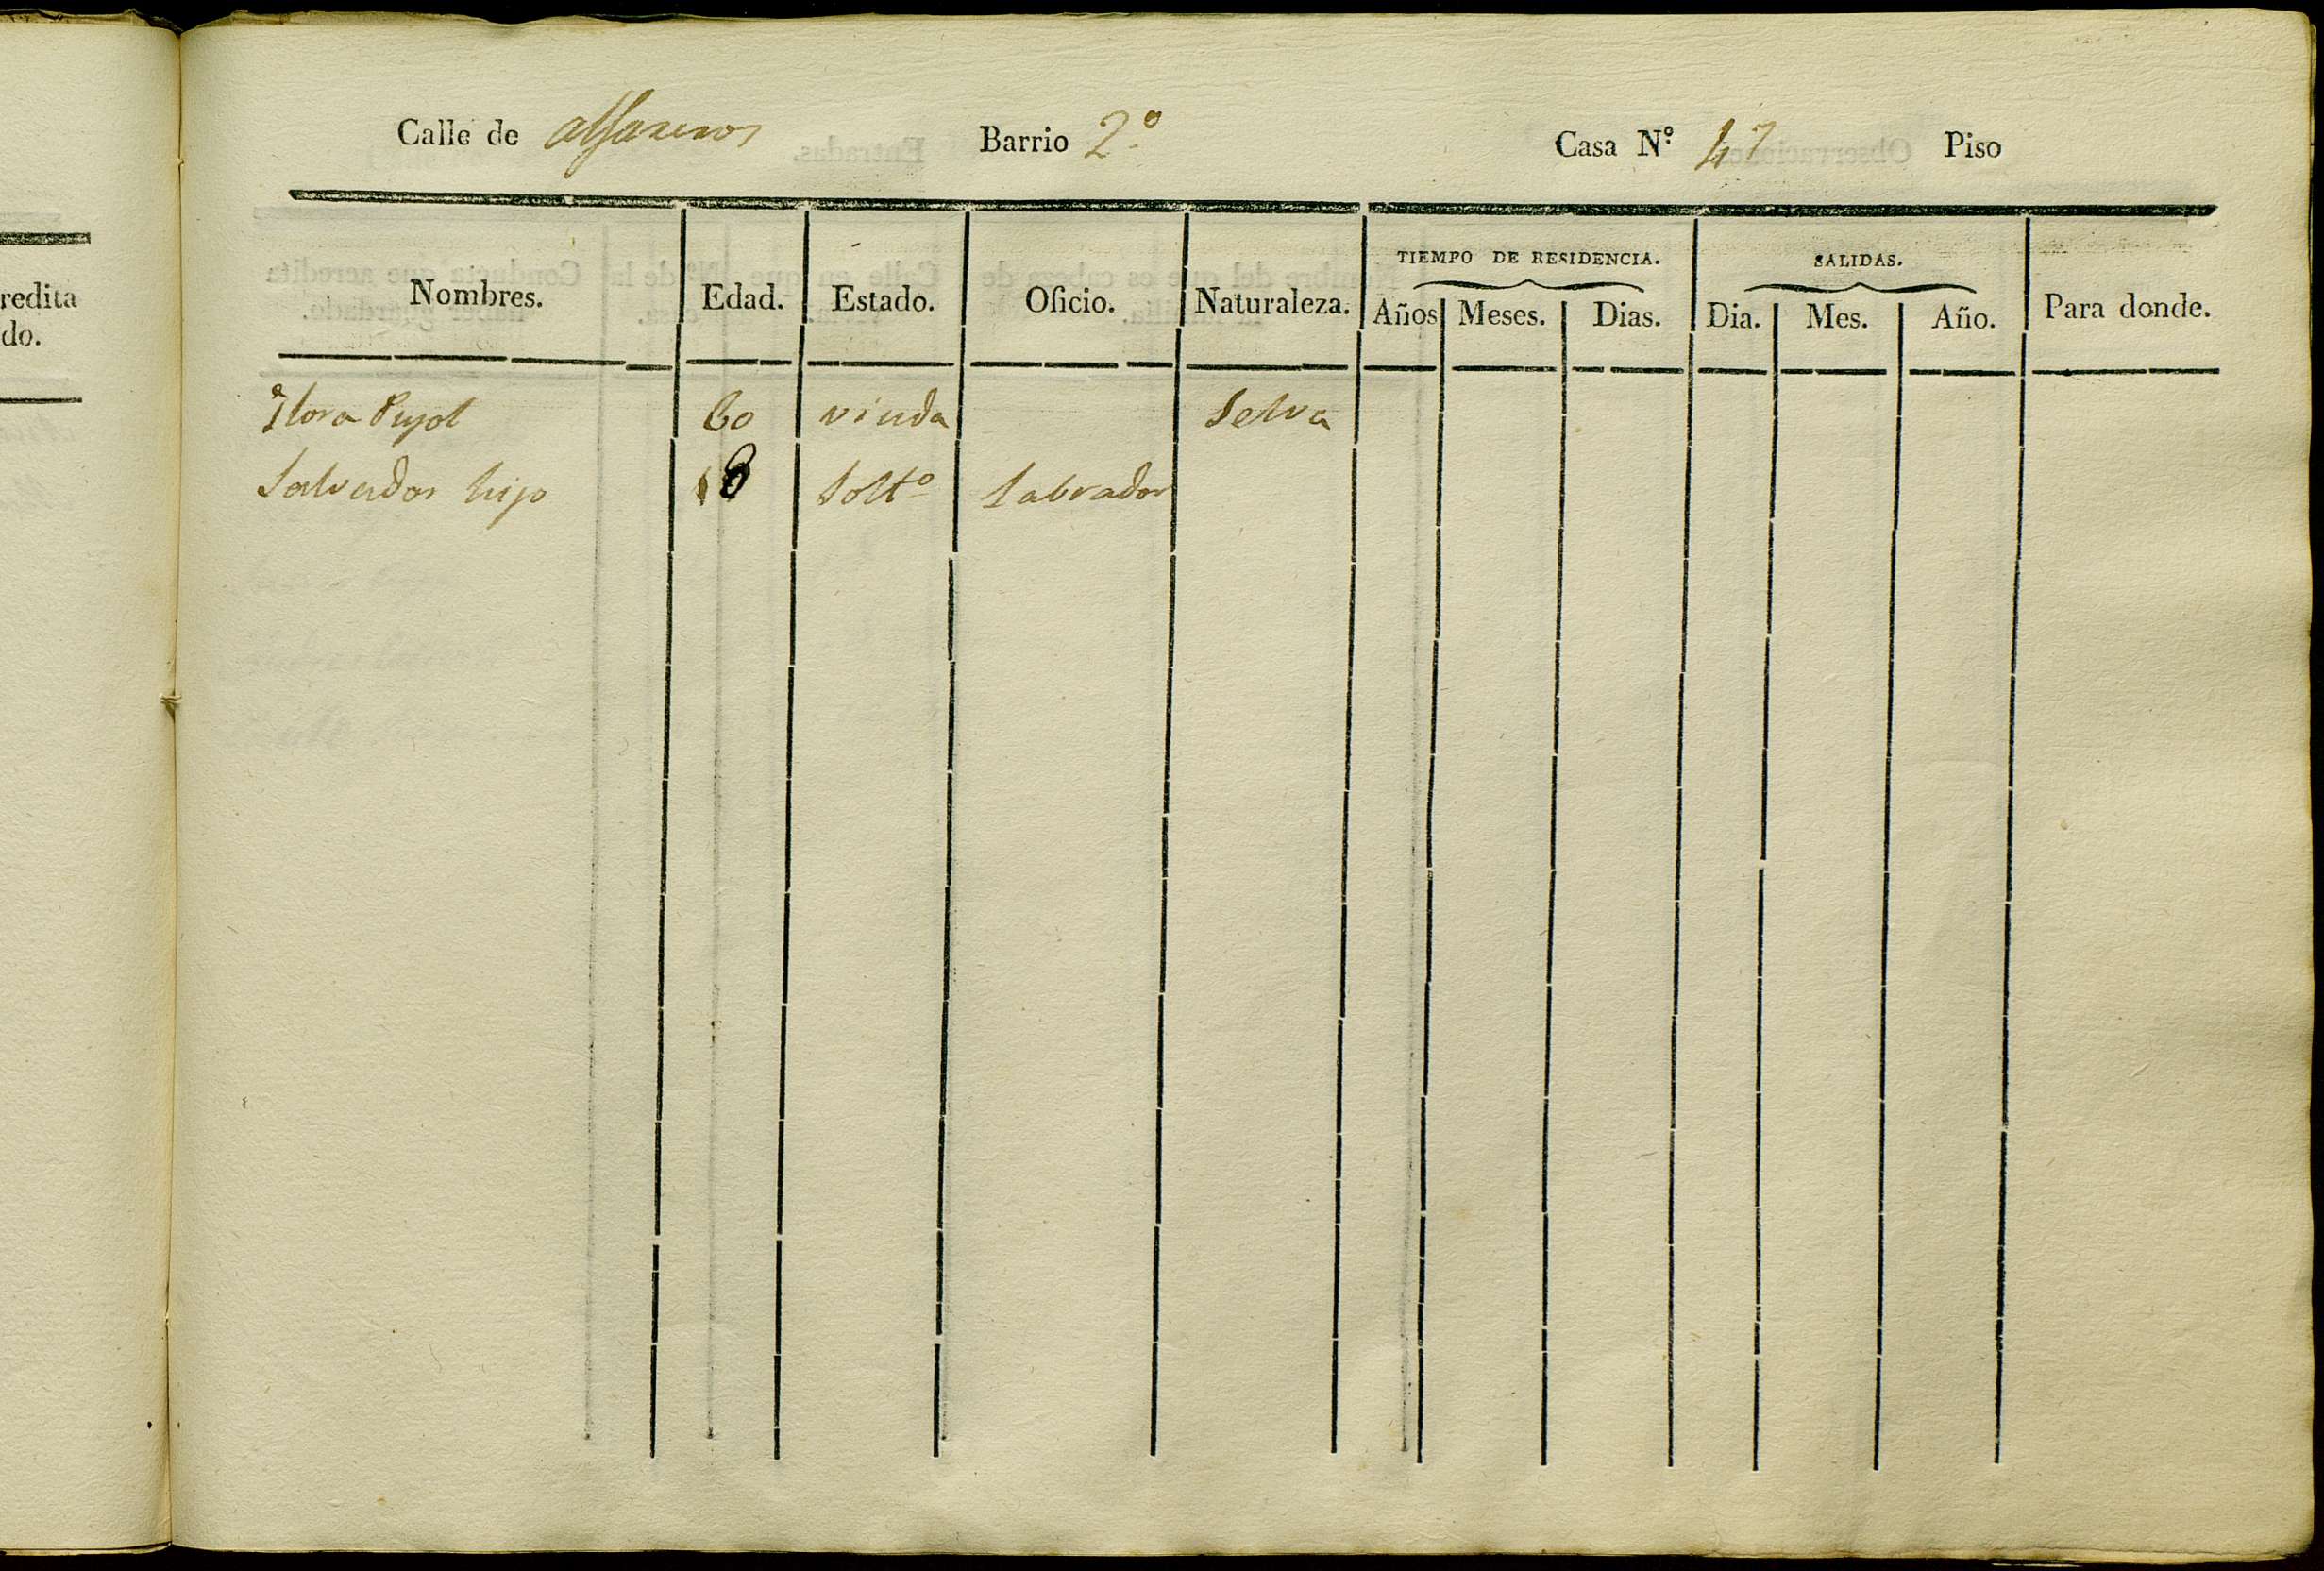 redita
do.
Calle de alfareros Barrio 2º Casa Nº 47 Piso
Nombres. Edad. Estado. Oficio. Naturaleza. TIEMPO DE RESIDENCIA. SALIDAS. Para donde.
Años Meses. Dias. Dia. Mes. Año.
Flora Pujol 60 viuda Selva
Salvador hijo 18 Soltº Labrador